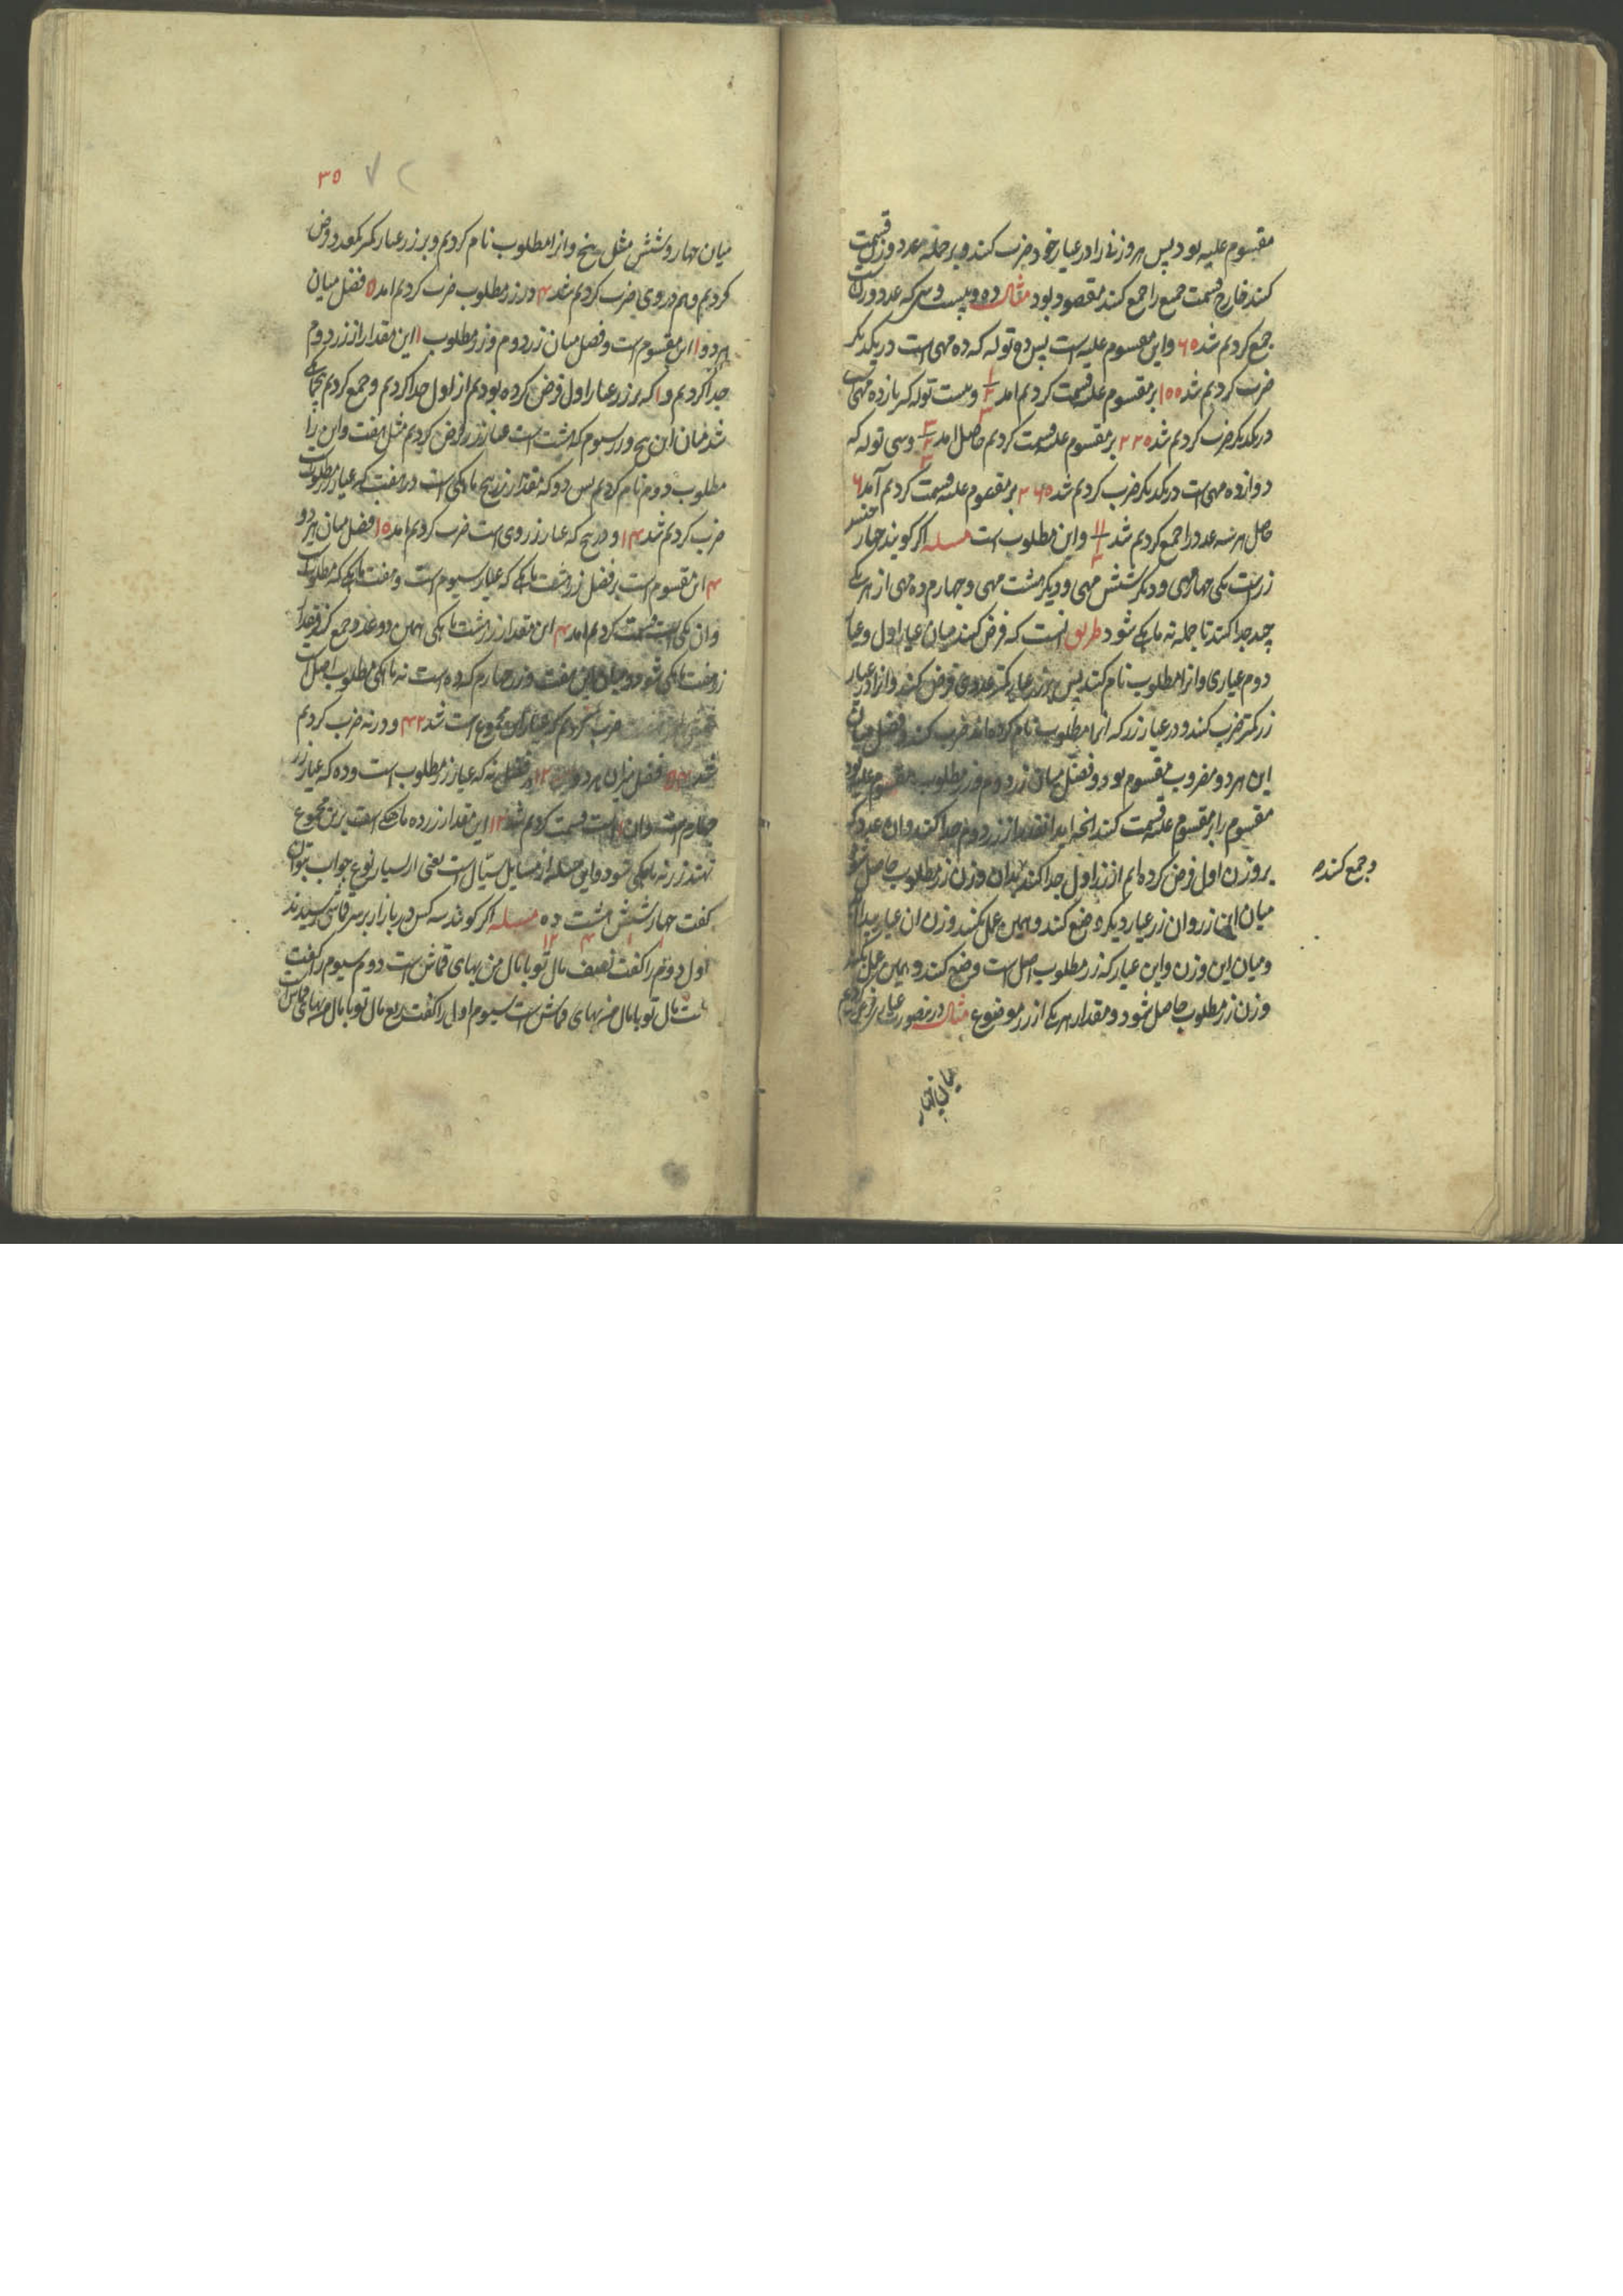 مقسوم علیه بود پس هر وزنی را در عیار خود ضرب کنند و بر جمله عدد وزن قسمت
کنند خارج قسمت جمیع را جمع کنند مقصود بود مثال ده و بیست و سی که عدد وزن است
جمع کردیم شد ۶۵ و این مقسوم علیه است پس ده توله که ده مهی است در یکدیگر
ضرب کردیم شد ۱۵۵ بر مقسوم علیه قسمت کردیم امد و بیست توله که یازده مهی است
در یکدیگر ضرب کردیم شد ۲۲۵ بر مقسوم علیه قسمت کردیم حاصل امد و سی توله که
دوازده مهی است در یکدیگر ضرب کردیم شد ۳۶۵ بر مقسوم علیه قسمت کردیم آمد ۶
حاصل هر سه عدد را جمع کردیم شد ۱۱ و این مطلوب است مسله اکر کویند چهار جنس
زر است یکی چهار مهی و دیکر شش مهی و دیکر هشت مهی و چهارم ده مهی از هر یکی
چند جدا کنند تا جمله نه ماهکی شود طریق انست که فرض کنند میان عیار اول و عیار
دوم عیاری و انرا مطلوب نام کنند پس بر زر عیار کمتر عددی فرض کنند و انرا در عیار
زر کمتر ضرب کنند و در عیار زر که انرا مطلوب نام کرده اند ضرب کنند و فضل میان
این هر دو مضروب مقسوم بود و فضل میان زر دوم و زر مطلوب مقسوم علیه بود
مقسوم را بر مقسوم علیه قسمت کنند انچه اید انقدر از زر دوم جدا کنند و ان عدد که
بر وزن اول فرض کرده ایم از زر اول جدا کنند بدان وزن زر مطلوب حاصل شود
و جمع کنند
میان این زر و ان زر عیار دیکر وضع کنند و همین عمل کنند وزن ان عیار پیدا
و میان این وزن و این عیار که زر مطلوب اصل است وضع کنند و همین عمل کنند
وزن زر مطلوب حاصل شود و مقدار هر یکی از زر موضوع مثال درین صورت عیاری فرض کردیم
میان چهار
۳۵ ۷۲
میان چهار و شش مثل پنج و انرا مطلوب نام کردیم و بر زر عیار کمتر یکعدد فرض
کردیم و هم در وی ضرب کردیم شد ۴ و در زر مطلوب ضرب کردیم امد ۵ فضل میان
هر دو ۱ این مقسوم است و فضل میان زر دوم و زر مطلوب ۱ این مقدار از زر دوم
جدا کردیم و ۱ که بر زر عیار اول فرض کرده بودیم از اول جدا کردیم و جمع کردیم
شد میان این پنج و زر سیوم که هشت است عیار زر فرض کردیم مثل هفت و این را
مطلوب دوم نام کردیم پس دو که مقدار زر پنج ماهکی است در هفت که عیار زر مطلوبست
ضرب کردیم شد ۱۴ و در پنج که عیار زر وی است ضرب کردیم امد ۱۵ فضل میان هر دو
۴ این مقسوم است بر فضل زر هشت ماهکی که عیار سیوم است و هفت ماهکی که مطلوبست
و ان یکی است قسمت کردیم امد ۴ این مقدار زر هشت ماهکی بهمین دو عدد جمع کنند
زر هفت ماهکی شود و میان این هفت و زر چهارم که ده است نه ماهکی مطلوب اصل است
ضرب کردیم که عیار این مجموع است شد ۴۲ و در نه ضرب کردیم
شد ۵۴ فضل میان هر دو ۱۲ و فضل نه که عیار زر مطلوب است و ده که عیار زر
چهارم است و ان ۱ است قسمت کردیم شد ۱۲ این مقدار زر ده ماهکی است برین مجموع
نهند زر نه ماهکی شود و این مسله از مسایل سیال است یعنی از بسیار نوع جواب توان
کفت چهار شش هشت ده مسله اکر کویند سه کس در بازار بر سر قماشی رسیدند
۱ ۱ ۴ ۱۲
اول دوم را کفت نصف مال تو با مال من بهای قماش است دوم سیوم را کفت
ثلث مال تو با مال من بهای قماش است سیوم اول را کفت ربع مال تو با مال من بهای قماش است